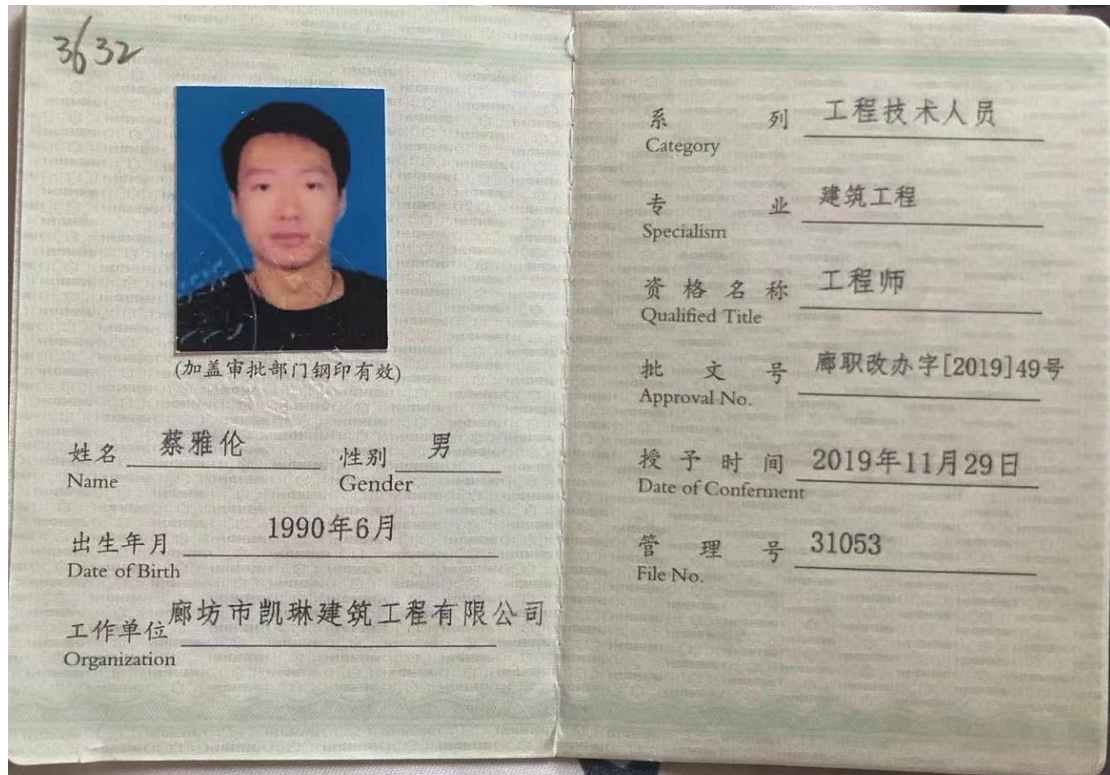 3632
(加盖审批部门钢印有效)
姓名 蔡雅伦 性别 男
Name Gender
出生年月 1990年6月
Date of Birth
工作单位 廊坊市凯琳建筑工程有限公司
Organization
系列 工程技术人员
Category
专业 建筑工程
Specialism
资格名称 工程师
Qualified Title
批文号 廊职改办字[2019]49号
Approval No.
授予时间 2019年11月29日
Date of Conferment
管理号 31053
File No.